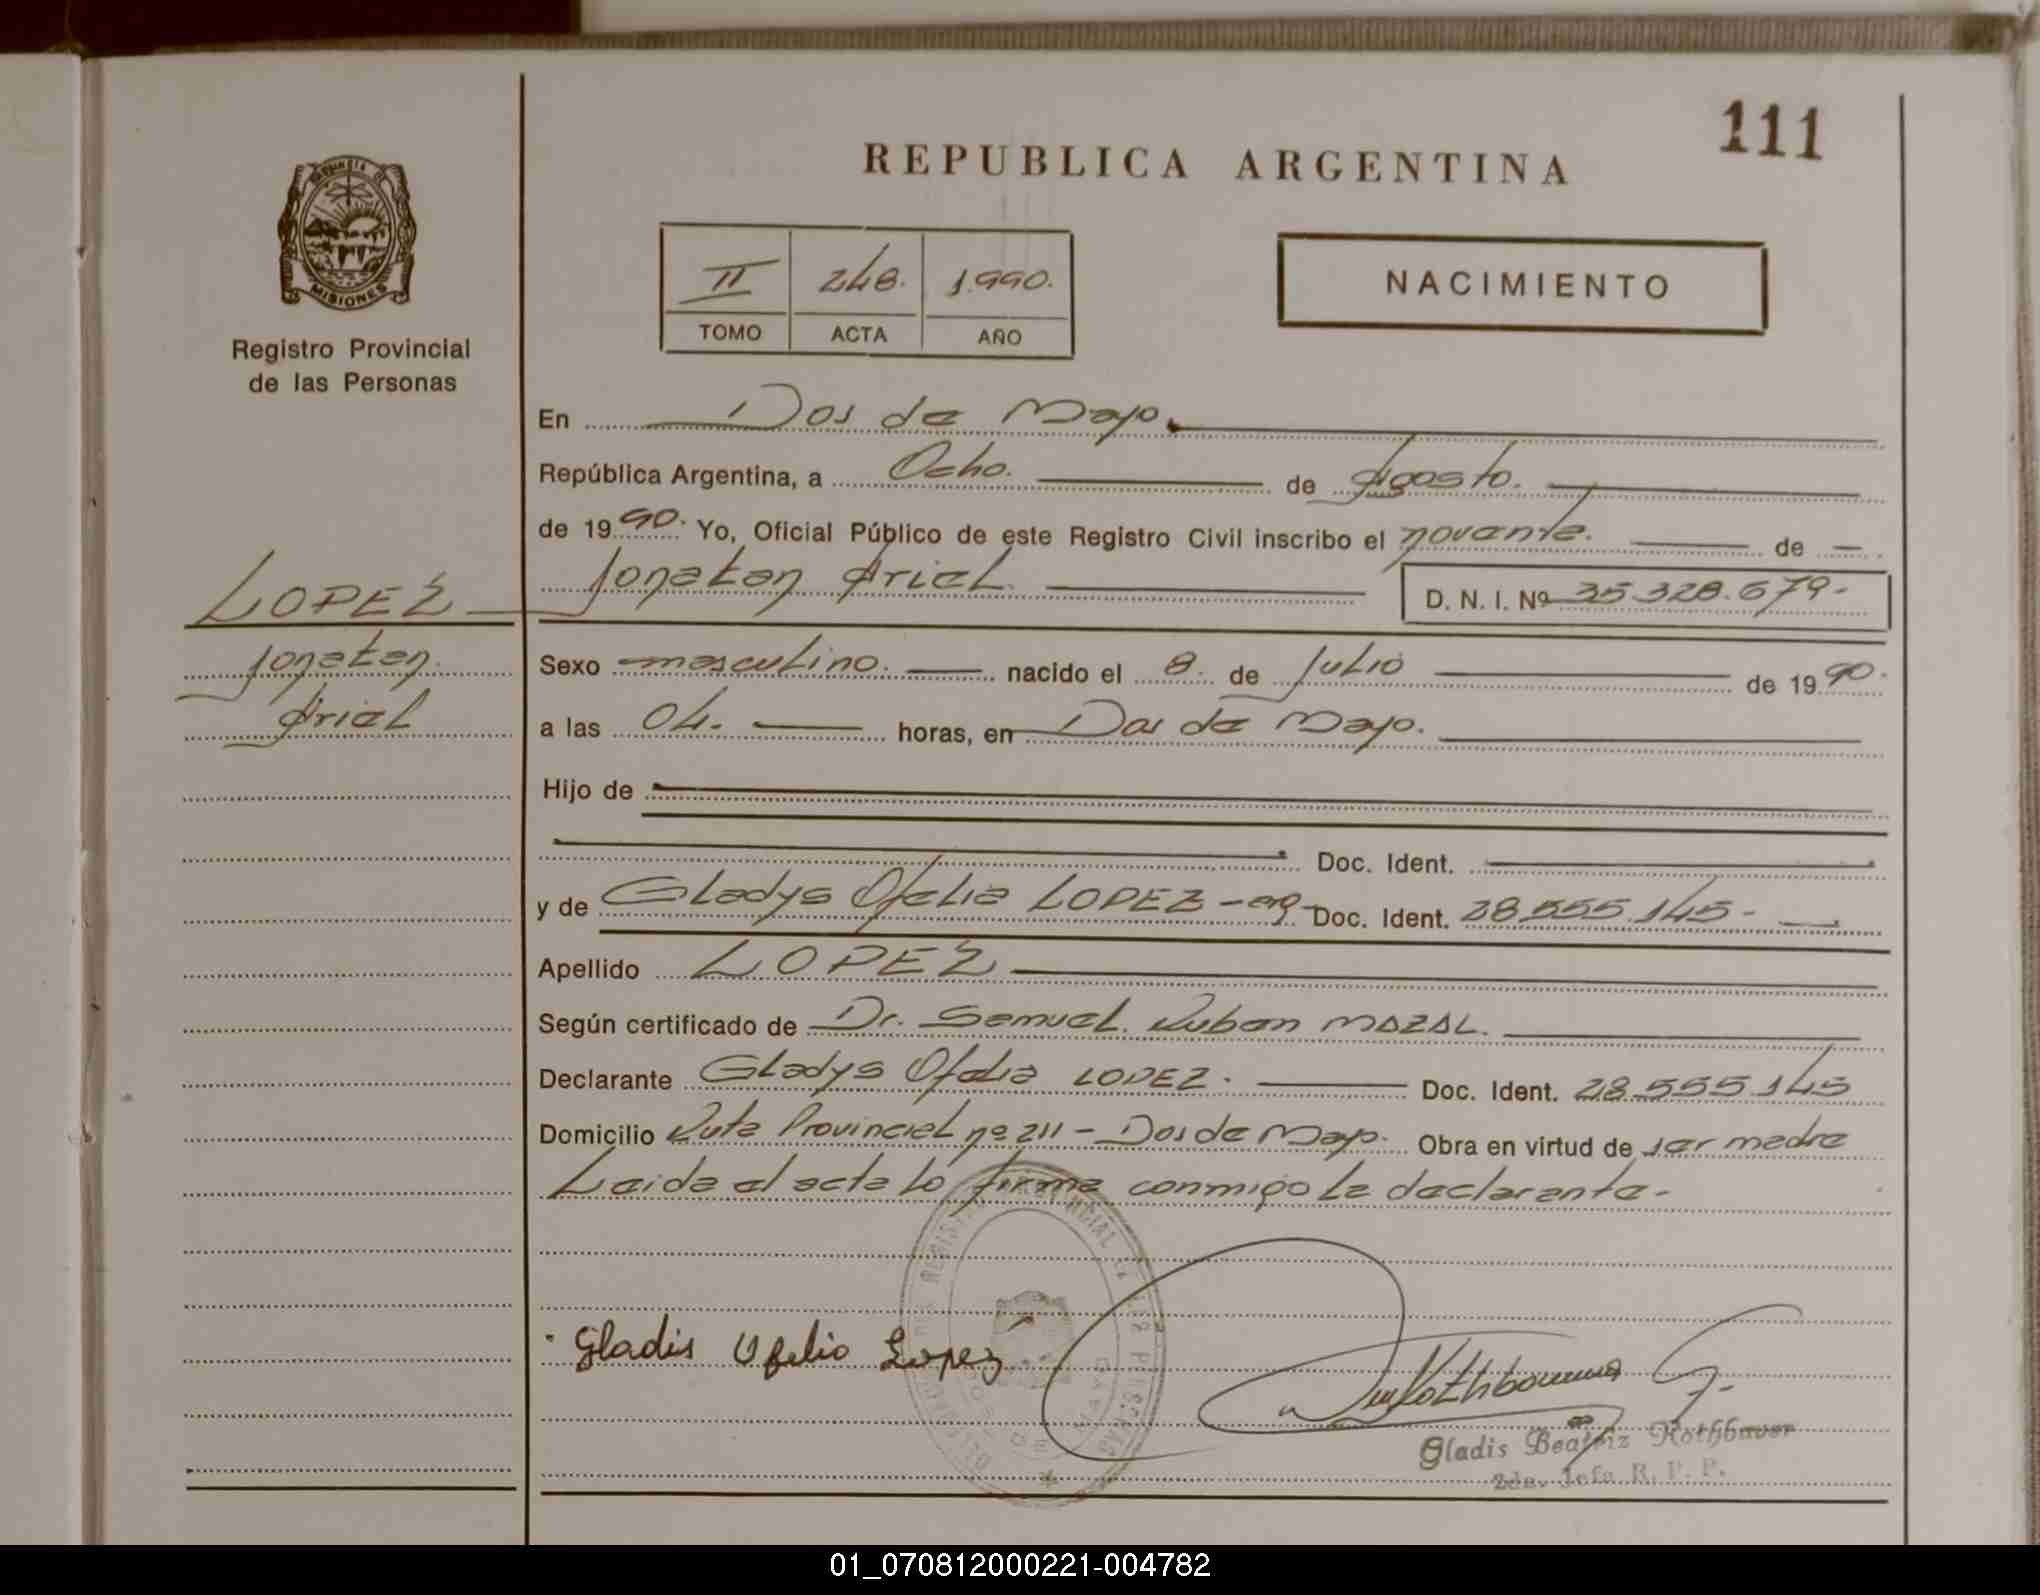 111
REPUBLICA ARGENTINA
PROVINCIA D
MISIONES
Registro Provincial
de las Personas
II 248. 1.990.
TOMO ACTA AÑO
NACIMIENTO
En Dos de Mayo.
República Argentina, a Ocho. de Agosto.
de 1990. Yo, Oficial Público de este Registro Civil inscribo el de
LOPEZ Jonatan Ariel. D. N. I. Nº 35.328.679.-
Jonatan
Ariel
Sexo masculino. nacido el 8. de Julio de 1990.
a las 04. horas, en Dos de Mayo.
Hijo de
Doc. Ident.
y de Gladys Ofelia LOPEZ - arg- Doc. Ident. 28.555.145-
Apellido LOPEZ
Según certificado de Dr. Samuel Ruben MAZAL.
Declarante Gladys Ofelia LOPEZ. Doc. Ident. 28.555.145
Domicilio Ruta Provincial nº 211 - Dos de Mayo. Obra en virtud de ser madre
Leida el acta lo firma conmigo la declarante.-
Gladis Ofelio Lopez
REGISTRO PROVINCIAL DE LAS PERSONAS
DOS DE MAYO
Gladis Beatriz Rothbauer
2da. Jefa R. P. P.
01_070812000221-004782